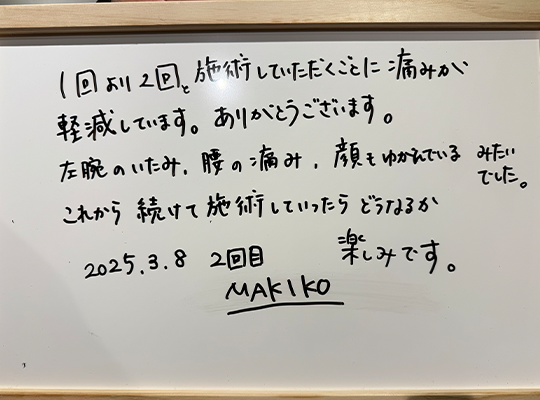 1回より2回と施術していただくごとに痛みが
軽減しています。ありがとうございます。
左腕のいたみ、腰の痛み、顔もゆがんでいる みたい
でした。
これから 続けて施術していったら どうなるか
楽しみです。
2025.3.8 2回目
MAKIKO